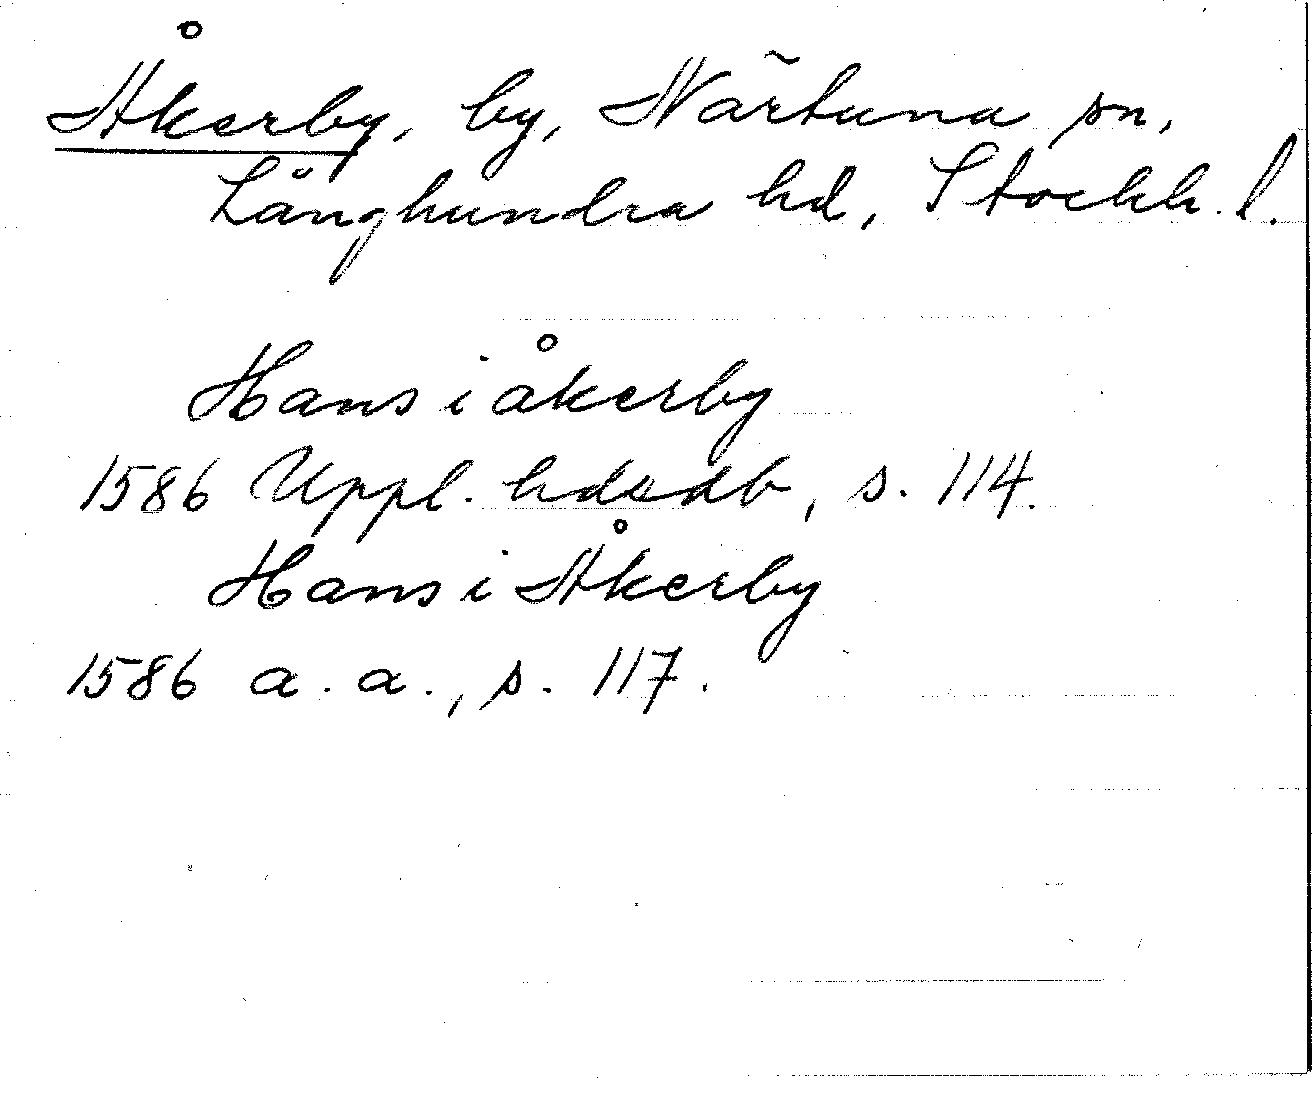 Åkerby, by, Närtuna sn,
Långhundra hd, Stockh. l.
Hans i åkerby
1586 Uppl. hdsdb, s. 114.
Hans i Åkerby
1586 a. a., s. 117.